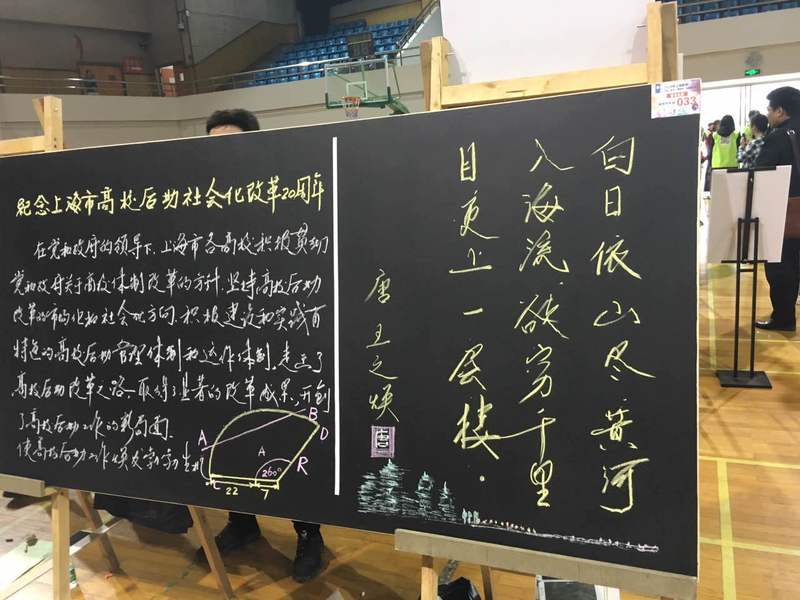 纪念上海市高校后勤社会化改革20周年
在党和政府的领导下,上海市各高校积极贯彻
党和政府关于高校体制改革的方针,坚持高校后勤
改革的市场化和社会化方向,积极建设和实践有
特色的高校后勤管理体制和运作体制,走出了
高校后勤改革之路,取得了显著的改革成果,开创
了高校后勤工作的新局面,
使高校后勤工作焕发生机
A
B
D
A
260°
R
C
22
7
白日依山尽黄河
入海流.欲穷千里
目更上一层楼.
唐 王之焕
033